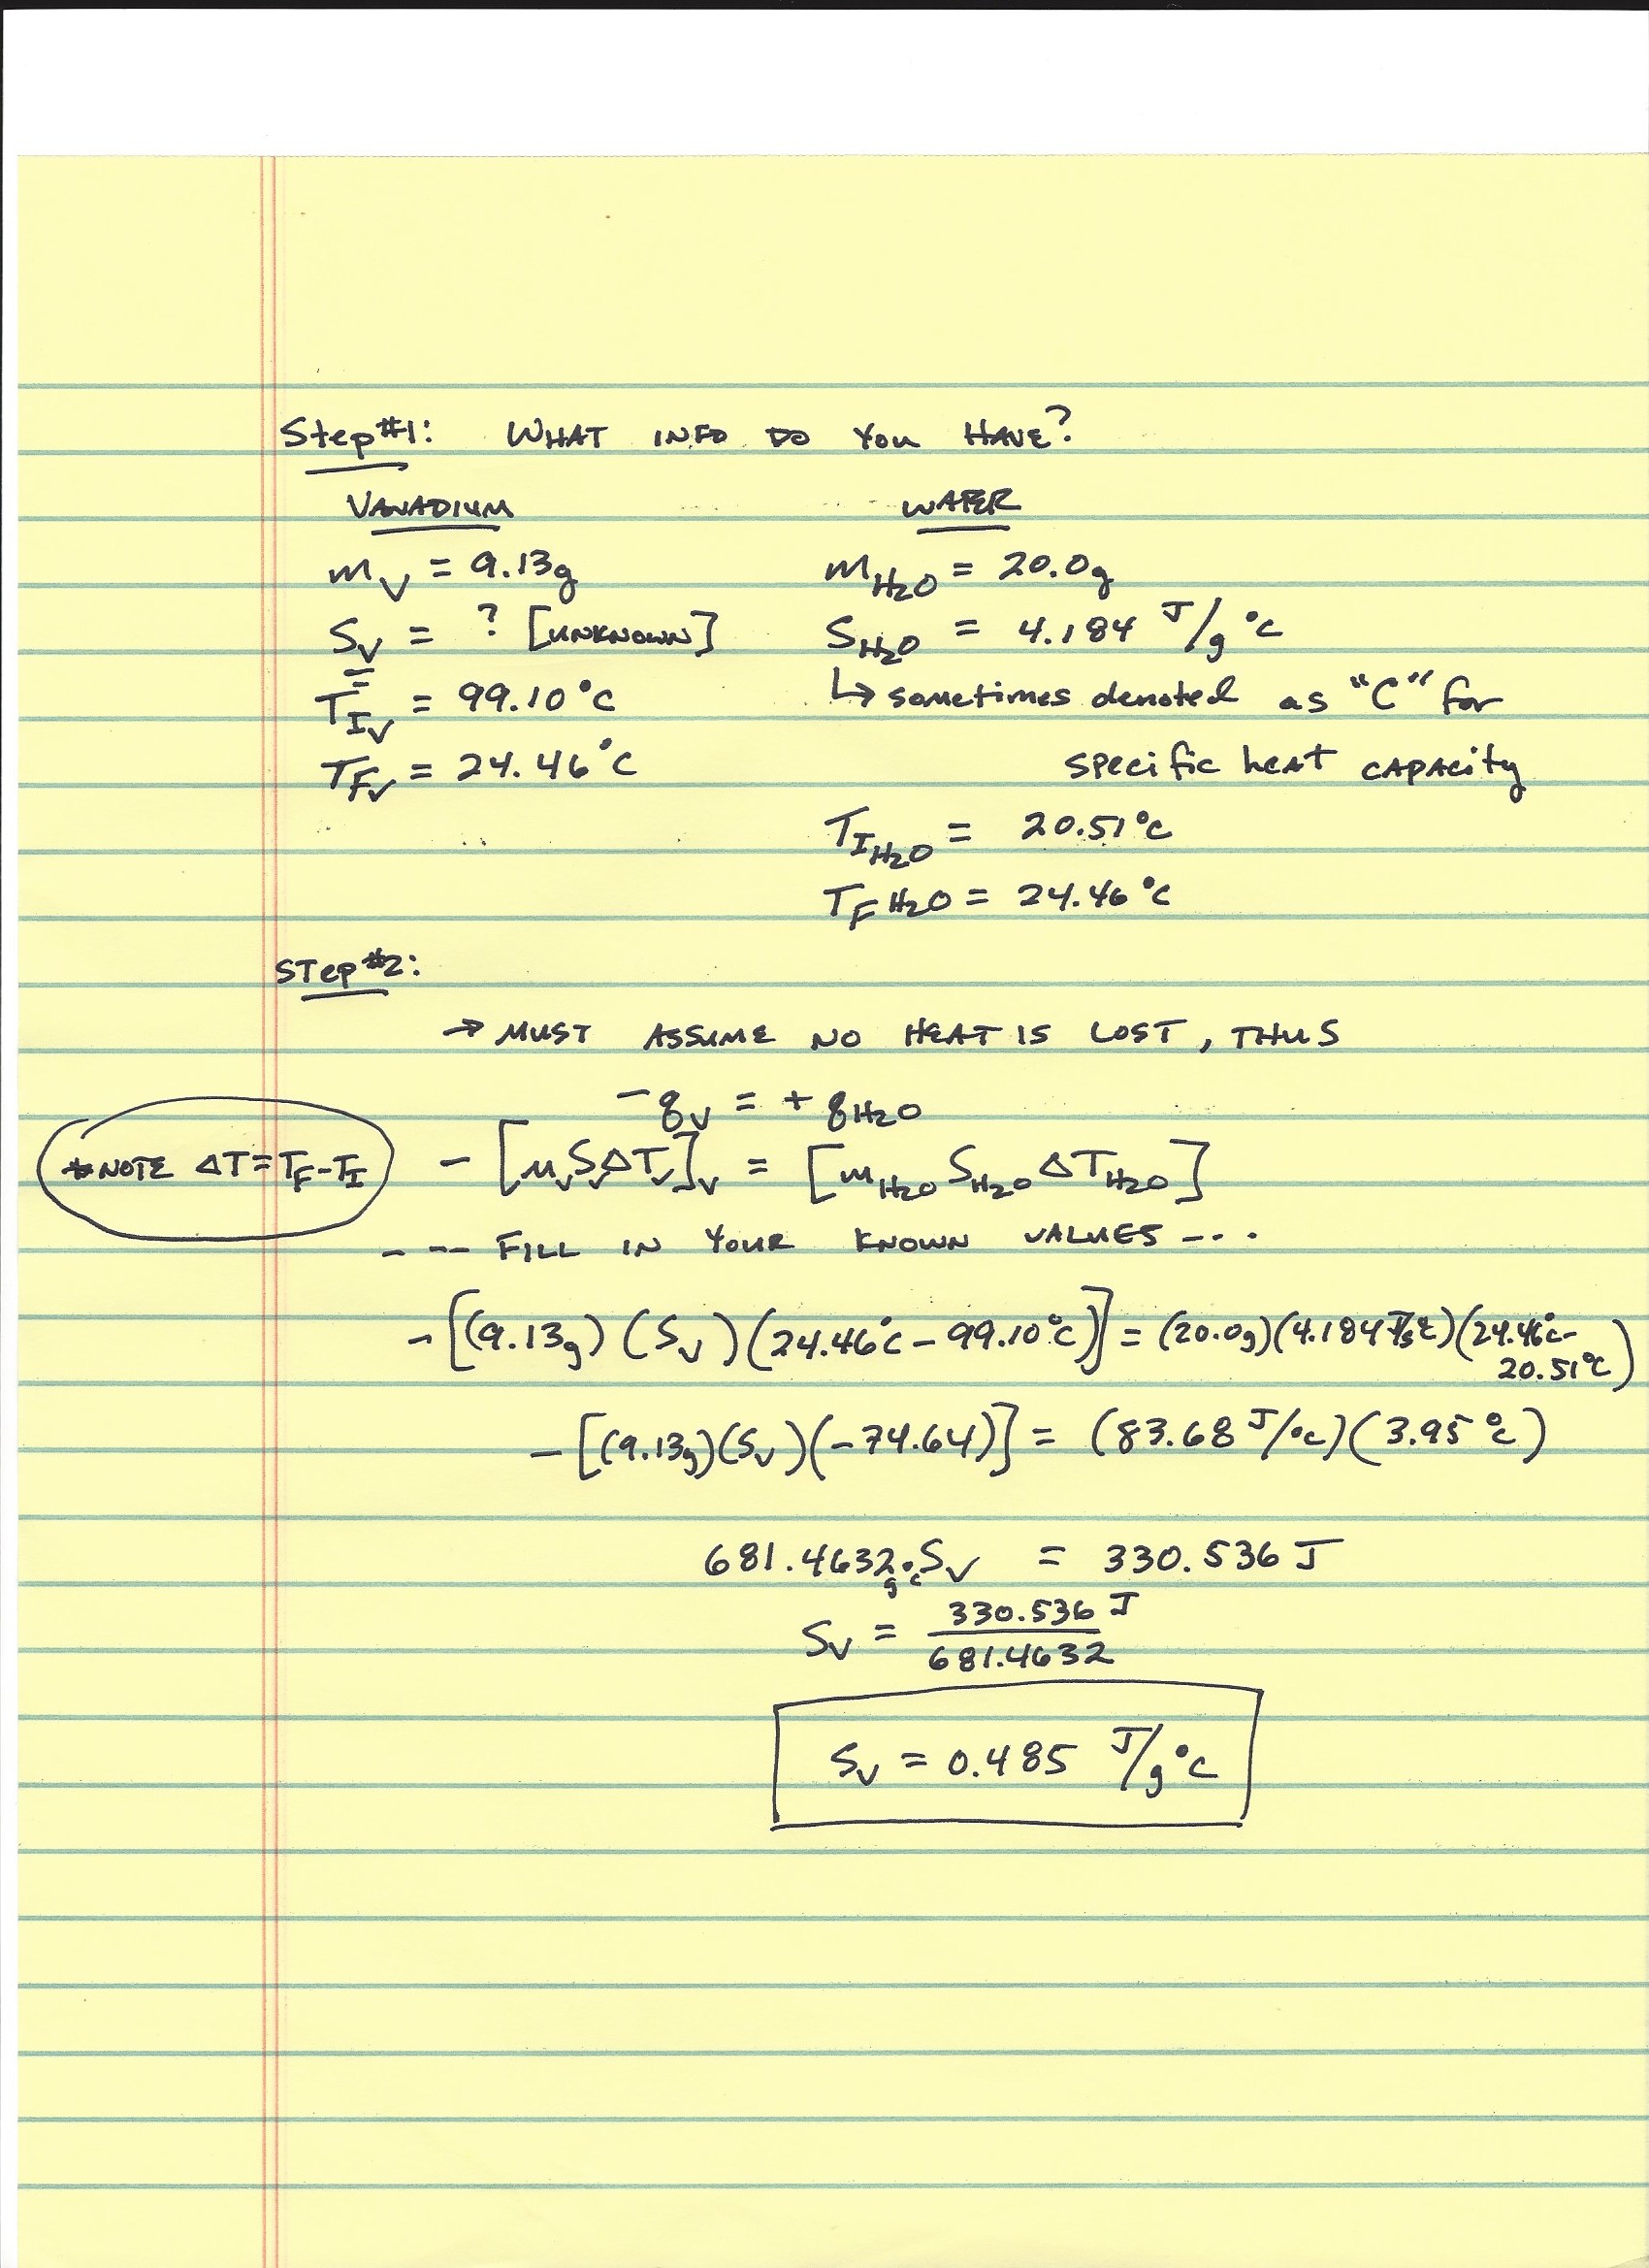 Step #1: WHAT INFO DO YOU HAVE?
VANADIUM WATER
m_V = 9.13g m_H2O = 20.0g
S_V = ? [UNKNOWN] S_H2O = 4.184 J/g°C
T_IV = 99.10°C ↳ sometimes denoted as "C" for
T_FV = 24.46°C specific heat capacity
T_I H2O = 20.51°C
T_F H2O = 24.46°C
STep #2:
→ MUST ASSUME NO HEAT IS LOST, THUS
-q_V = + q_H2O
*NOTE ΔT = T_F - T_I - [m_V S_V ΔT_V]_V = [m_H2O S_H2O ΔT_H2O]
---- FILL IN YOUR KNOWN VALUES ---.
- [(9.13g) (S_V) (24.46°C - 99.10°C)] = (20.0g)(4.184 J/g°C)(24.46°C-
20.51°C)
- [(9.13g)(S_V)(-74.64)] = (83.68 J/°C)(3.95°C)
681.4632 g°C S_V = 330.536 J
S_V = 330.536 J / 681.4632
S_V = 0.485 J/g°C